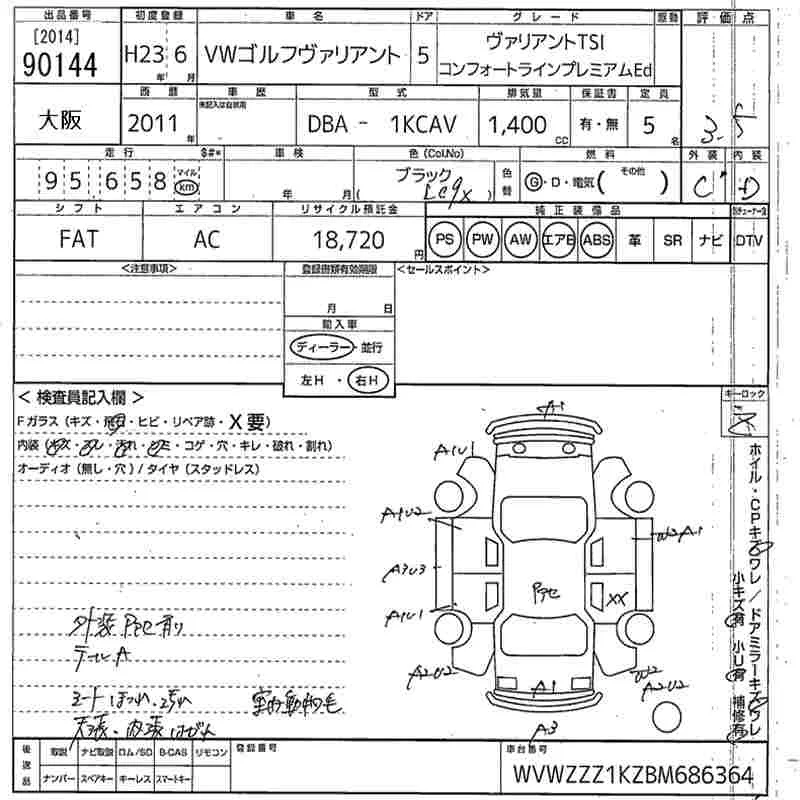 出品番号 初度登録 車名 ドア グレード 駆動 評価点
[2014]
90144 H23年 6月 VWゴルフヴァリアント 5 ヴァリアントTSI
コンフォートラインプレミアムEd
西暦 車歴 型式 排気量 保証書 定員
未記入は自家用
大阪 2011年 DBA - 1KCAV 1,400cc 有・無 5名 3.5
走行 $#* 車検 色(Col.No) 燃料 外装 内装
95,658 マイル km 年 月 ブラック (LC9X) 色替 G・D・電気( その他 ) C D
シフト エアコン リサイクル預託金 純正装備品
FAT AC 18,720円 PS PW AW エアB ABS 革 SR ナビ DTV
<注意事項> 登録書類有効期限 <セールスポイント>
月 日
輸入車
ディーラー・並行
左H・右H
<検査員記入欄> キーロック
Fガラス(キズ・飛石・ヒビ・リペア跡・X要)
内装(キズ・スレ・汚れ・シミ・コゲ・穴・キレ・破れ・割れ)
オーディオ(無し・穴)/タイヤ(スタッドレス)
A1
A1U1
A1U2 W3 A1
A3U3
Pアセ XX
A1U1
A2U2 W2
A2U2
A1
A3
外装Pアセ有り
テールA
シートほつれ、スレ 室内動物毛
天張、内張はがれ
ホイル・CPキズワレ/ドアミラーキズワレ
小キズ有 小U有 補修有
後送品 取説 ナビ取説 ロム/SD B-CAS リモコン 登録番号 車台番号
ナンバー スペアキー キーレス スマートキー WVWZZZ1KZBM686364